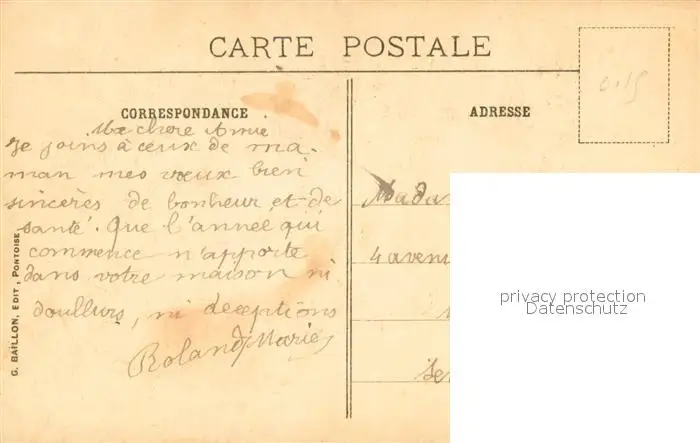 CARTE POSTALE
0.15
CORRESPONDANCE
Ma chere Amie
Je joins à ceux de ma-
man mes vœux bien
sincères de bonheur et de
santé. Que l'année qui
commence n'apporte
dans votre maison ni
doulleurs, ni deceptions
Roland Marie
G. BAILLON, EDIT, PONTOISE
ADRESSE
Mada
4 aven
privacy protection
Datenschutz